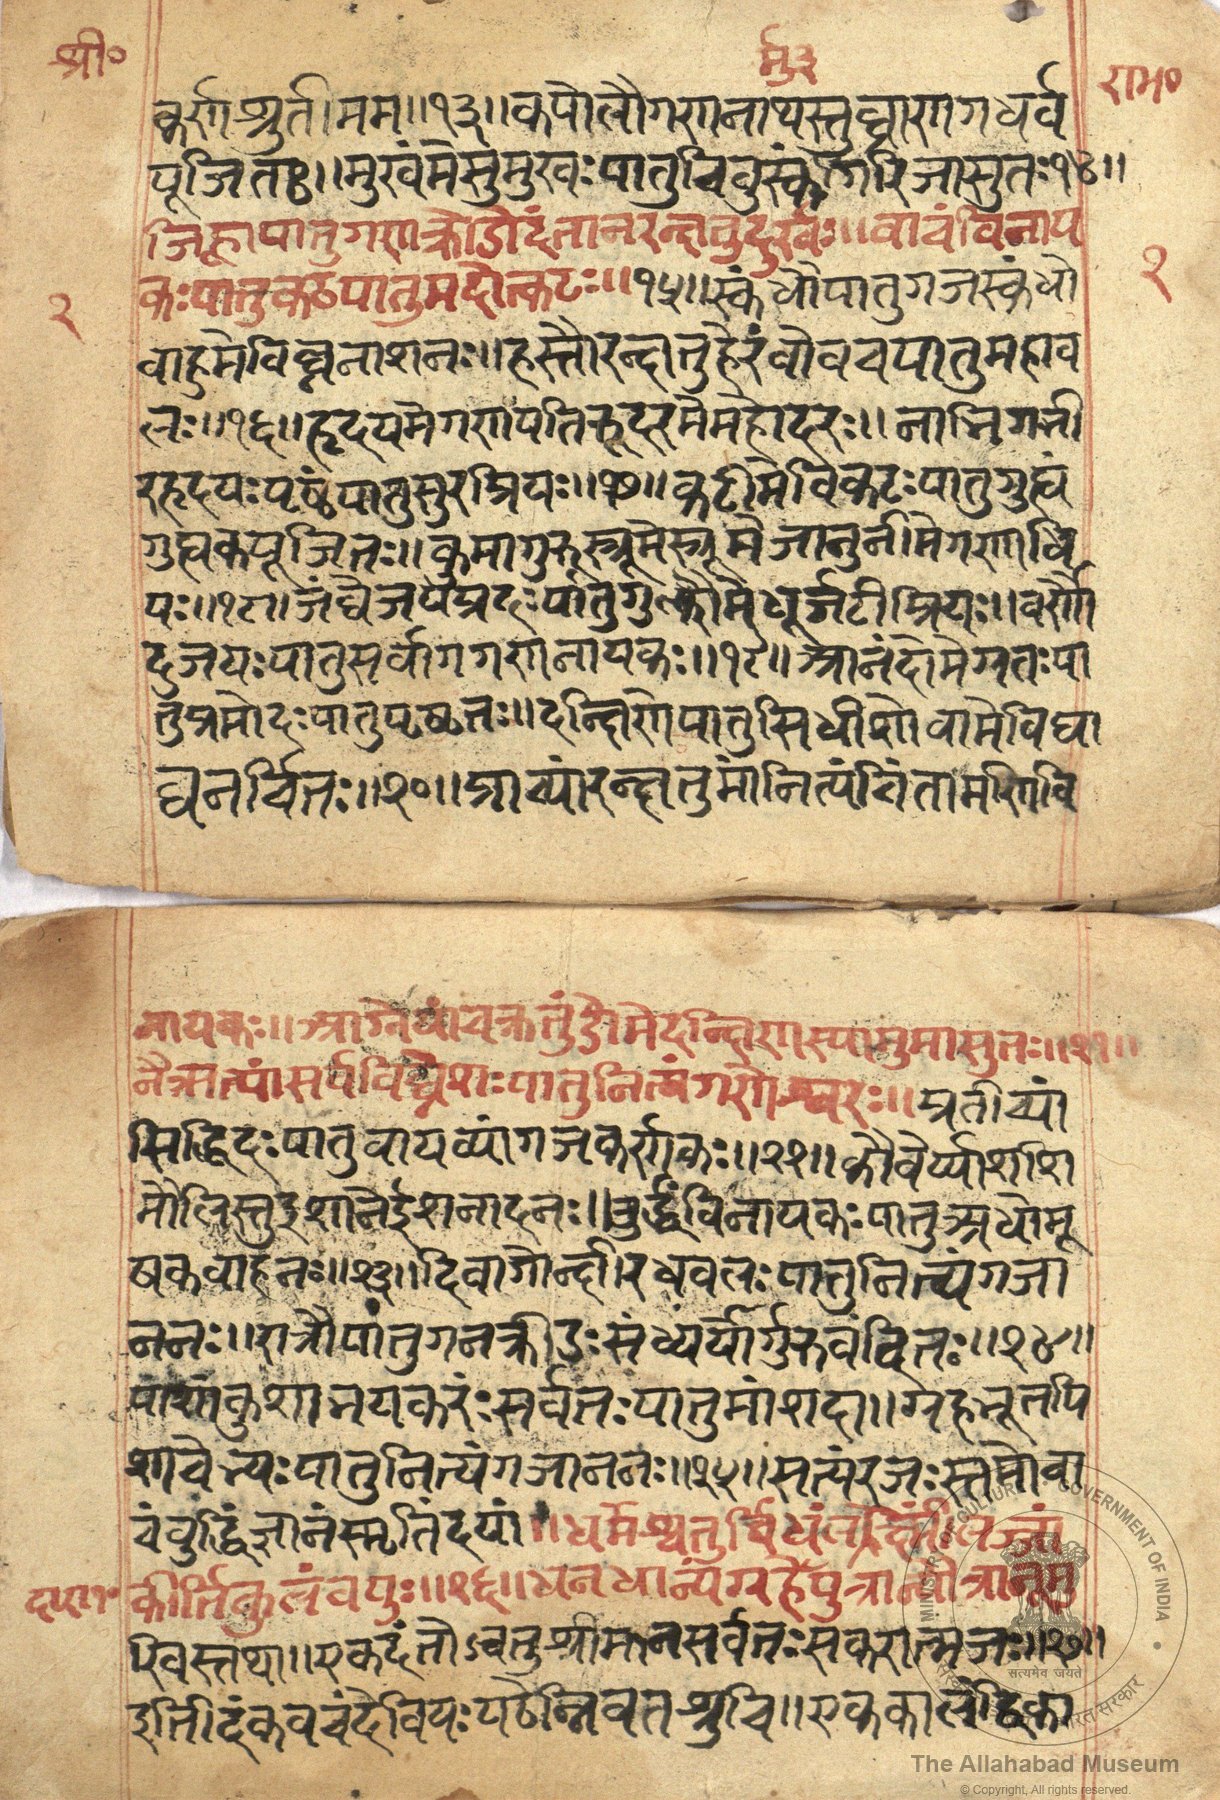 श्री०
र्मु३
राम०
कर्णश्रुतीमम॥१३॥कपोलौगणनाथस्तुघ्राणगधर्व
पूजितः॥मुखंमेसुमुखःपातुचिवुस्कंगिरिजासुतः१४॥
जिह्वापातुगणक्रीडोदंतानरक्षतुदुर्मुखः॥वाचंविनाय
२
कःपातुकठपातुमदोत्कटः॥१५॥स्कंधौपातुगजस्कंधो
२
वाहुमेविघ्ननाशनः॥हस्तौरक्षतुहेरंवोवक्षपातुमहाव
लः॥१६॥हृदयमेगणपतिरुदरंमेमहोदरः॥नाभिगभी
रहृदयःपृष्ठंपातुसुरप्रियः॥१७॥कटीमेविकटःपातुगुह्यं
गुह्यकपूजितः॥
पः॥१८॥जंघेजयप्रदःपातुगुल्फौमेधूर्जटीप्रियः॥वर्णौ
दुजयःपातुसर्वागगणनायकः॥१९॥आनंदोमेग्रतःपा
तुप्रमोदःपातुपृष्ठतः॥दक्षिणेपातुसिधीशोवामेविद्या
धरर्चितः॥२०॥प्राच्यांरक्षतुमांनित्यंचिंतामणिवि
नायकः॥आग्नेयांवक्रतुंडोमेदक्षिणस्यामुमासुतः॥२१॥
नैऋत्यांसर्वविघ्नेशःपातुनित्यंगणेश्वरः॥प्रतीच्यां
सिद्धिदःपातुवायव्यांगजकर्णकः॥२२॥कौवेर्य्याशशि
मौलिस्तुइशानेईशनादनः॥उर्द्धंविनायकःपातुअधोमू
षकवाहनः॥२३॥दिवागोक्षीरधवलःपातुनित्यंगजा
ननः॥रात्रौपातुगनक्रीडःसंध्यंर्योर्गुरुवंदितः॥२४॥
पाशांकुशाभयकरंःसर्वतःपातुमांशदा॥ग्रहभूतपि
शाचेभ्यःपातुनित्यंगजाननः॥२५॥सत्यंरजःस्तमोवा
चंवुद्धिंज्ञानंस्मृतिंदयां॥धर्मश्चतुर्विधंलक्ष्मींलज्जां
दया१॰
कीर्तिकुलंवपुः॥२६॥धनधान्यंग्रहंपुत्रान्पौत्रान्मु
खिस्तथा॥एकदंतोऽवतुश्रीमानसर्वतःसकरात्मजः॥२७॥
इतीदंकवचंदेवियःपठेन्नियतश्रुचि॥एककालंद्विका
MINISTRY OF CULTURE GOVERNMENT OF INDIA
सत्यमेव जयते
The Allahabad Museum
© Copyright, All rights reserved.